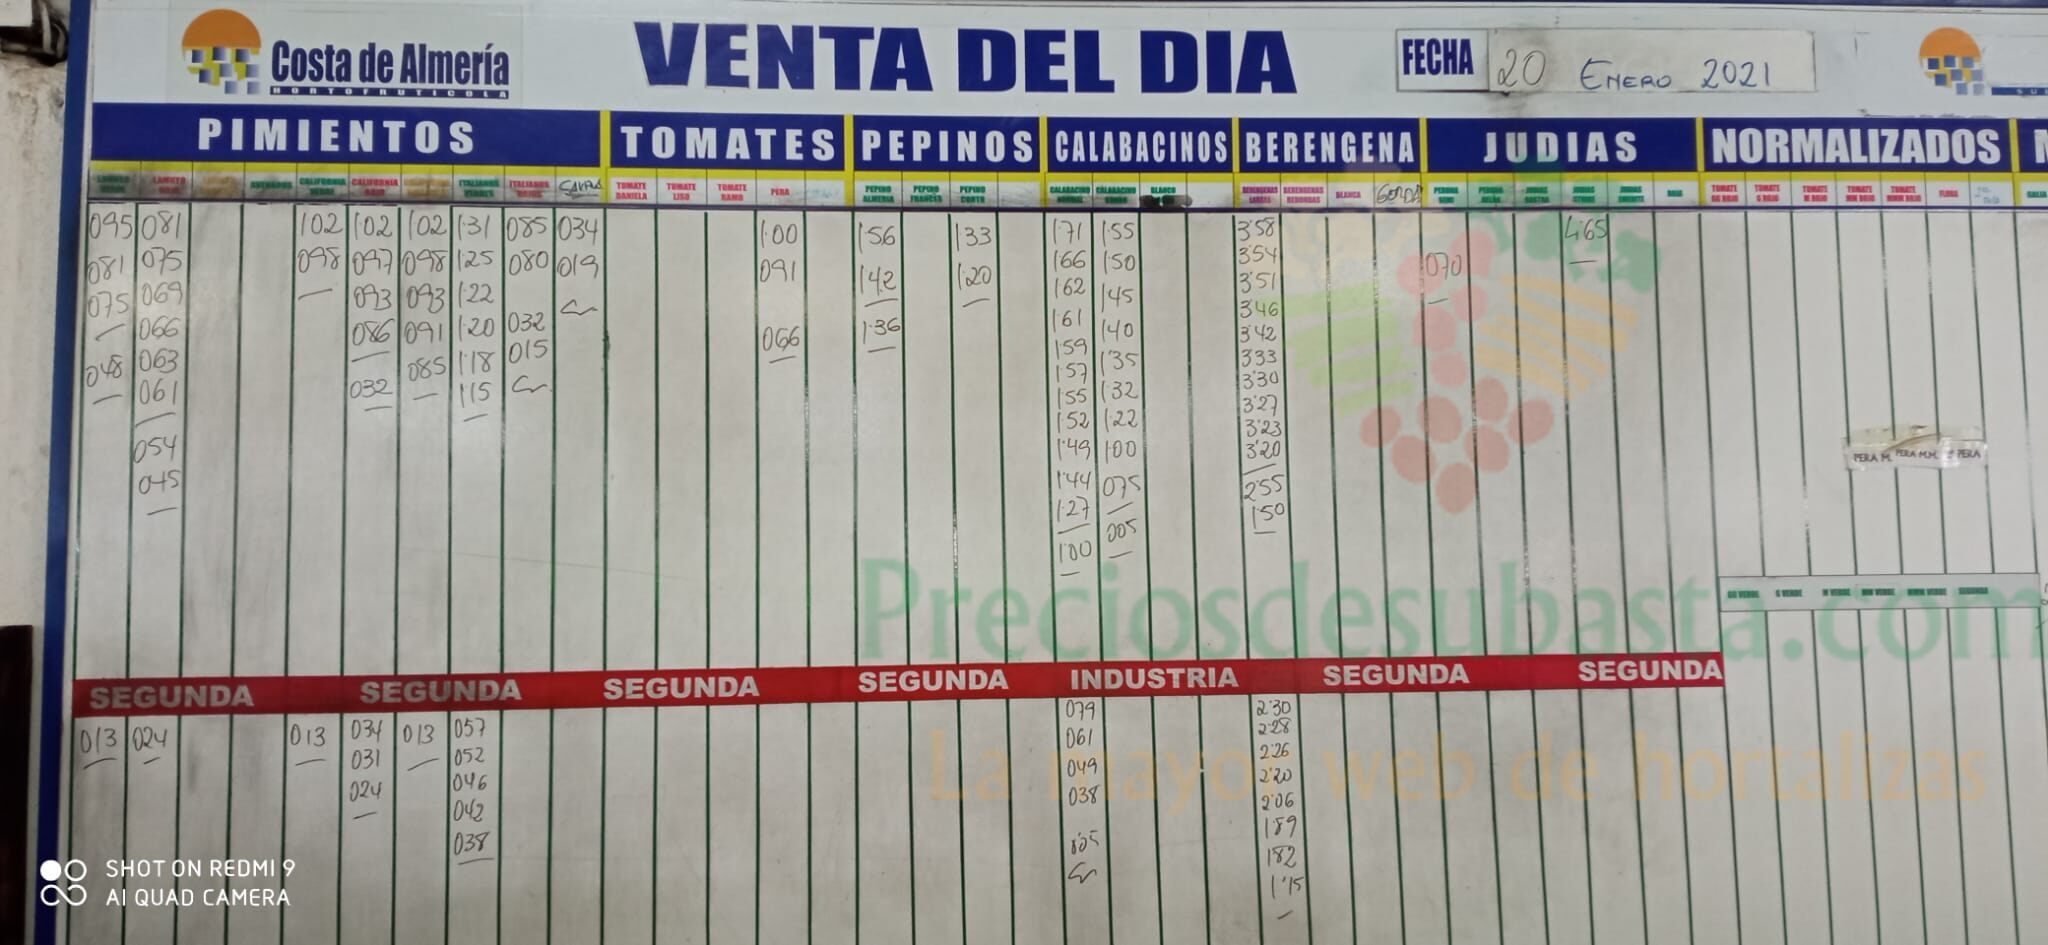 Costa de Almería
HORTOFRUTICOLA
VENTA DEL DIA
FECHA 20 ENERO 2021
PIMIENTOS TOMATES PEPINOS CALABACINOS BERENGENA JUDIAS NORMALIZADOS
LAMUYO LAMUYO CALIFORNIA CALIFORNIA ITALIANOS ITALIANOS TOMATE DANIELA TOMATE LISO TOMATE RAMO PERA PEPINO ALMERIA PEPINO FRANCES PEPINO CORTO CALABACINO CALABACINO BLANCO BERENGENAS BERENGENAS REDONDAS BLANCA GORDA
095 081 102 102 102 1'31 085 034 1'00 1'56 1'33 1'71 1'55 3'58 4'65
081 075 098 097 098 1'25 080 019 091 1'42 1'20 1'66 1'50 3'54 070
075 069 093 093 1'22 1'62 1'45 3'51
066 086 091 1'20 032 066 1'36 1'61 1'40 3'46
048 063 085 1'18 015 1'59 1'35 3'42
061 032 1'15 1'57 1'32 3'33
054 1'55 1'22 3'30
045 1'52 1'00 3'27
1'49 075 3'23
1'44 005 3'20
1'27 2'55
1'00 1'50
PERA M. PERA M.M. PERA
GG VERDE G VERDE M VERDE MM VERDE MMM VERDE SEGUNDA
Preciosdesubasta.com
SEGUNDA SEGUNDA SEGUNDA SEGUNDA INDUSTRIA SEGUNDA SEGUNDA
013 024 013 034 013 057 079 2'30
031 052 061 2'28
024 046 049 2'26
042 038 2'20
038 2'06
1'89
1'82
1'15
La mayor web de hortalizas
SHOT ON REDMI 9
AI QUAD CAMERA